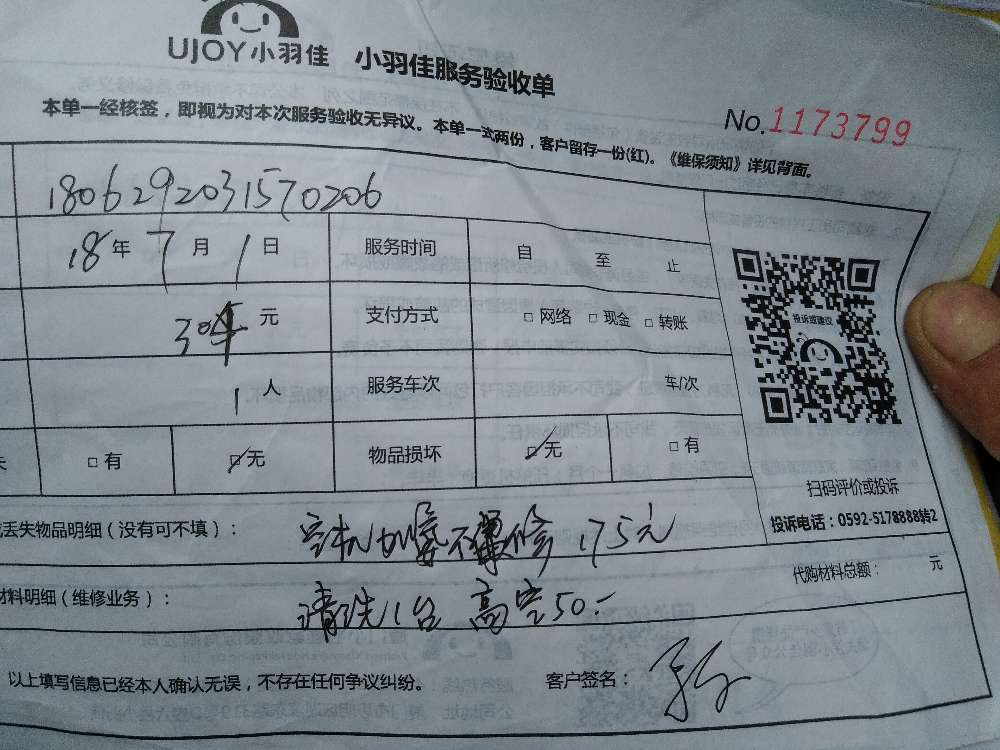 UJOY小羽佳 小羽佳服务验收单
本单一经核签，即视为对本次服务验收无异议。本单一式两份，客户留存一份(红)。《维保须知》详见背面。
No.1173799
1806292031570206
18年7月1日 服务时间 自 至 止
元 支付方式 □网络 □现金 □转账
投诉或建议
1人 服务车次 车/次
□有 □无 物品损坏 □无 □有
扫码评价或投诉
投诉电话：0592-5178888转2
丢失物品明细（没有可不填）： 175元
代购材料总额： 元
材料明细（维修业务）： 请洗1台 高空50.-
以上填写信息已经本人确认无误，不存在任何争议纠纷。 客户签名：